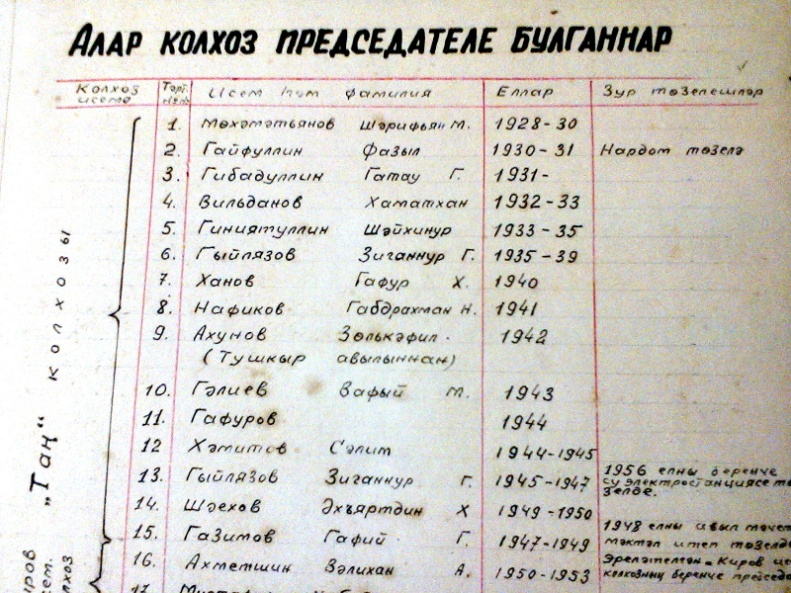 Алар колхоз председателе булганнар
Колхоз исеме Тәрт. №ль Исем һәм фамилия Еллар Зур төзелешләр
1. Мөхәмәтьянов Шәрифьян М. 1928-30
2. Гайфуллин Фазыл 1930-31 Нардот төзелә
3. Гибадуллин Гатау Г. 1931-
4. Вильданов Хаматхан 1932-33
5. Гиниятуллин Шәйхинур 1933-35
6. Гыйлязов Зиганнур Г. 1935-39
7. Ханов Гафур Х. 1940
8. Нафиков Габдрахман Н. 1941
9. Ахунов Зөлькәфил. 1942
(Тушкыр авылыннан)
10. Гәлиев Вафый М. 1943
11. Гафуров 1944
12 Хәмитов Сәлит 1944-1945
13. Гыйлязов Зиганнур Г. 1945-1947 1956 елны беренче
су электростанциясе тө
зелде.
14. Шәехов Әхъяртдин Х 1949-1950
15. Газимов Гафий Г. 1947-1949 1948 елны авыл мәчет
мәктәп итеп төзелд
16. Ахметшин Вәлихан А. 1950-1953 Эреләтелгән „Киров ис
колхозның беренче председа
17.
„Таң“ колхозы
иров
исем.
олхоз